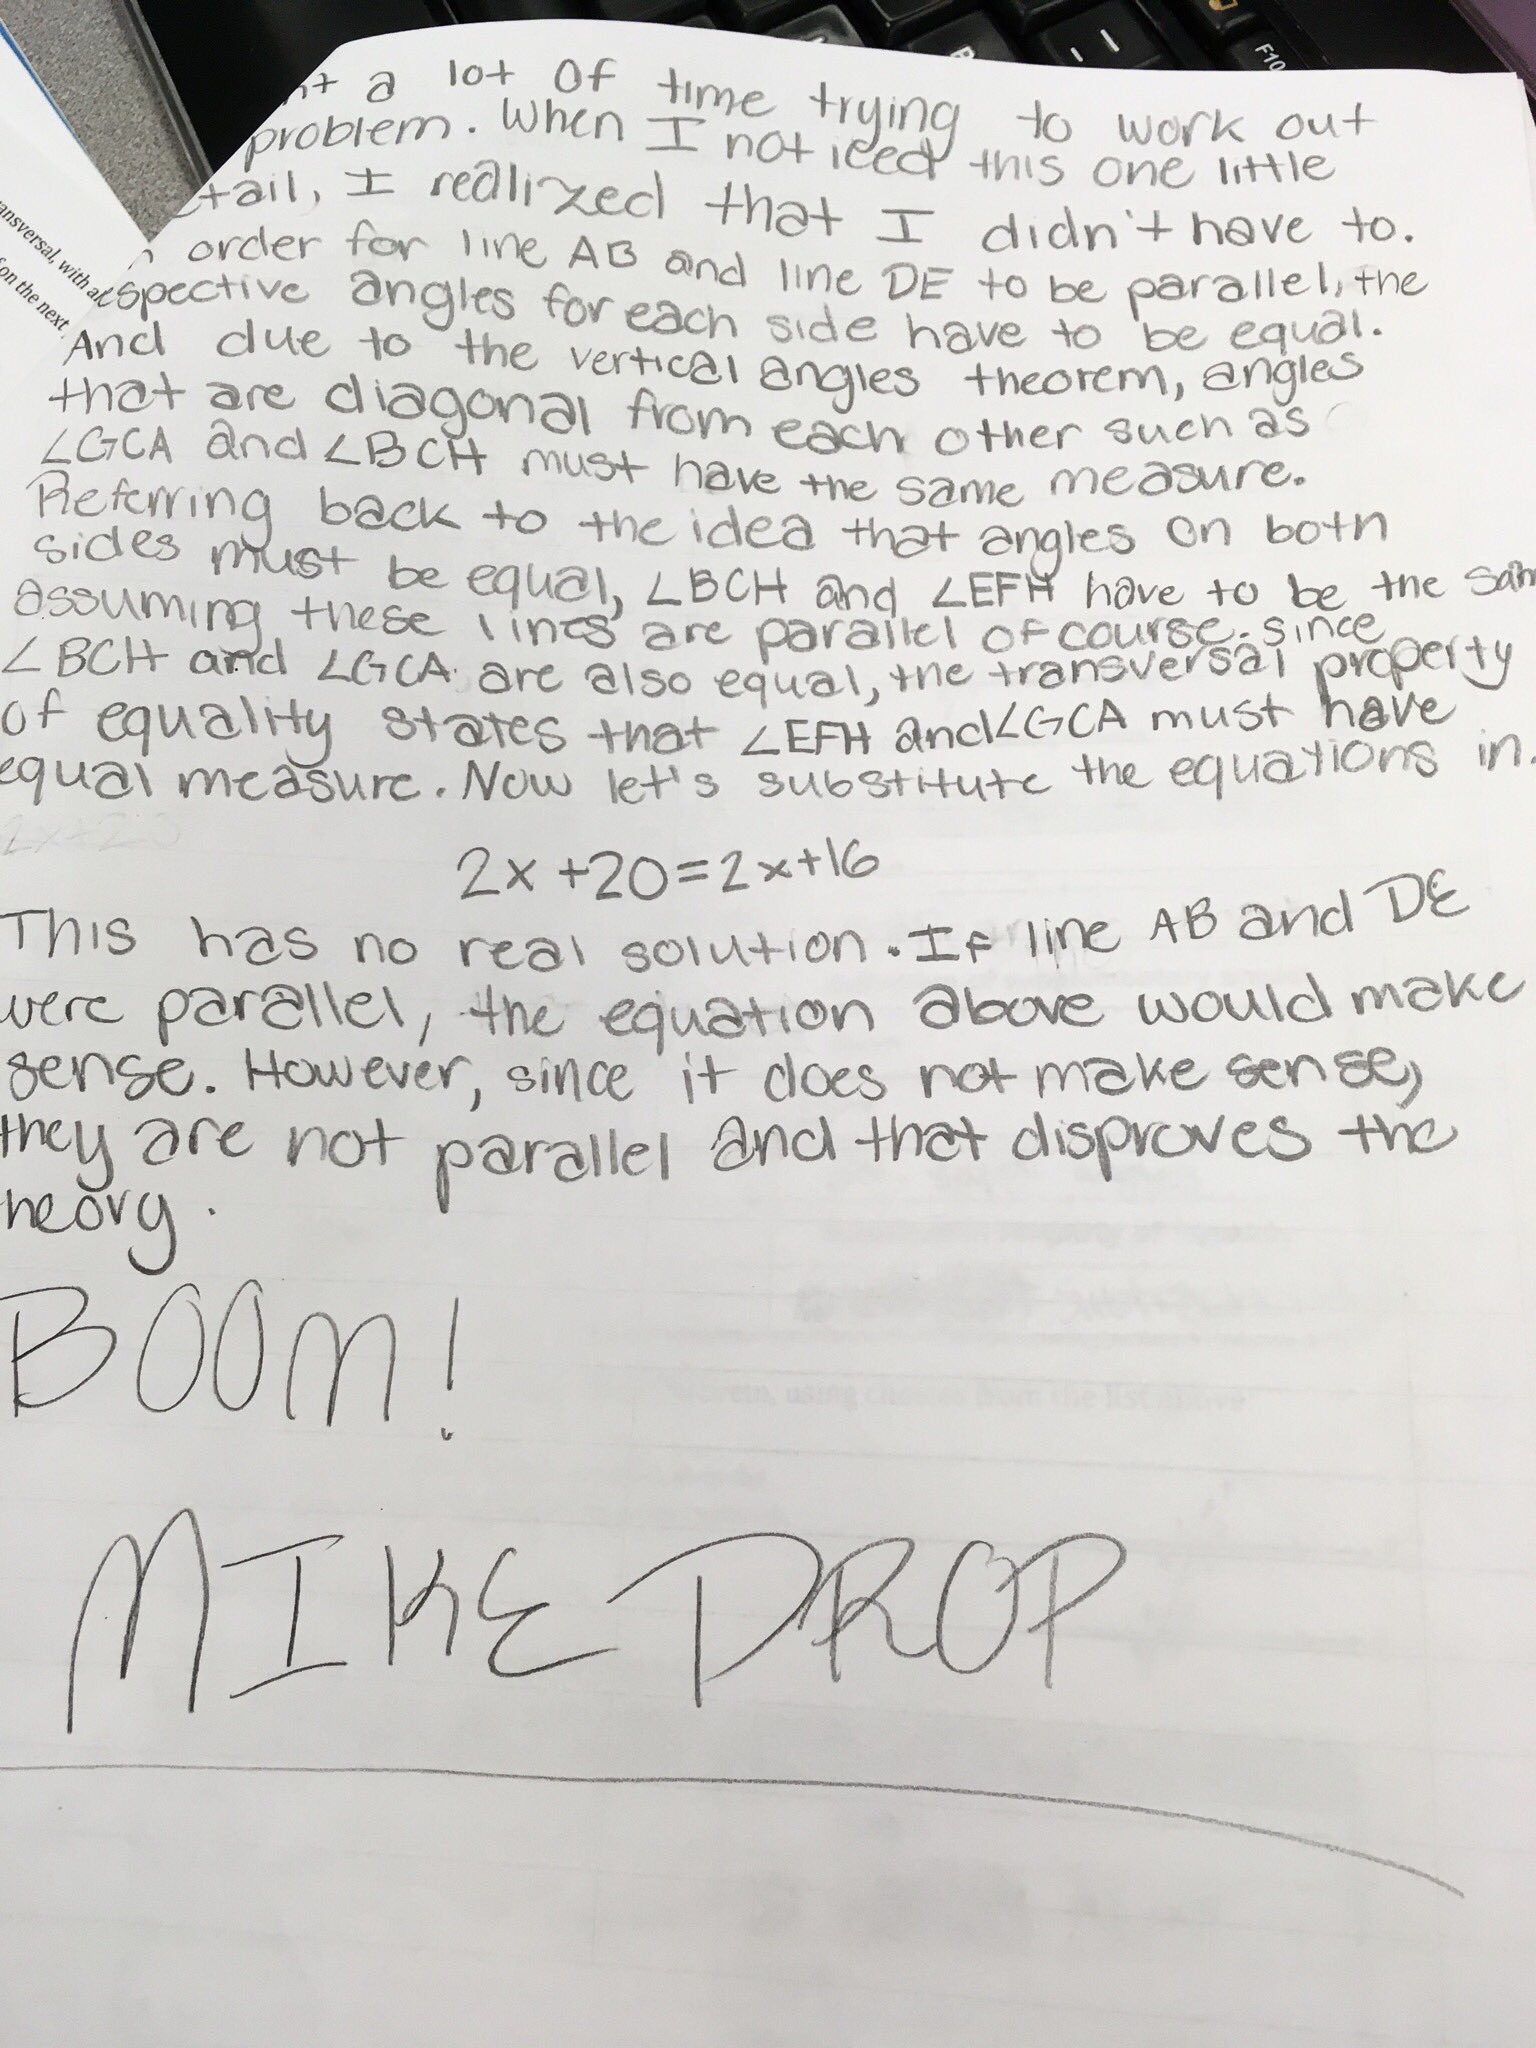 a lot of time trying to work out
problem. When I noticed this one little
I realized that I didn't have to.
order for line AB and line DE to be parallel, the
angles for each side have to be equal.
And due to the vertical angles theorem, angles
that are diagonal from each other such as
∠GCA and ∠BCH must have the same measure.
Referring back to the idea that angles on both
sides must be equal, ∠BCH and ∠EFH have to be the
assuming these lines are parallel of course. since
∠BCH and ∠GCA are also equal, the transversal property
of equality states that ∠EFH and ∠GCA must have
equal measure. Now let's substitute the equations in.
2x+20=2x+16
This has no real solution. If line AB and DE
were parallel, the equation above would make
sense. However, since it does not make sense,
they are not parallel and that disproves the
heory.
BOOM!
MIKE DROP
ansversal, with
on the next
F10